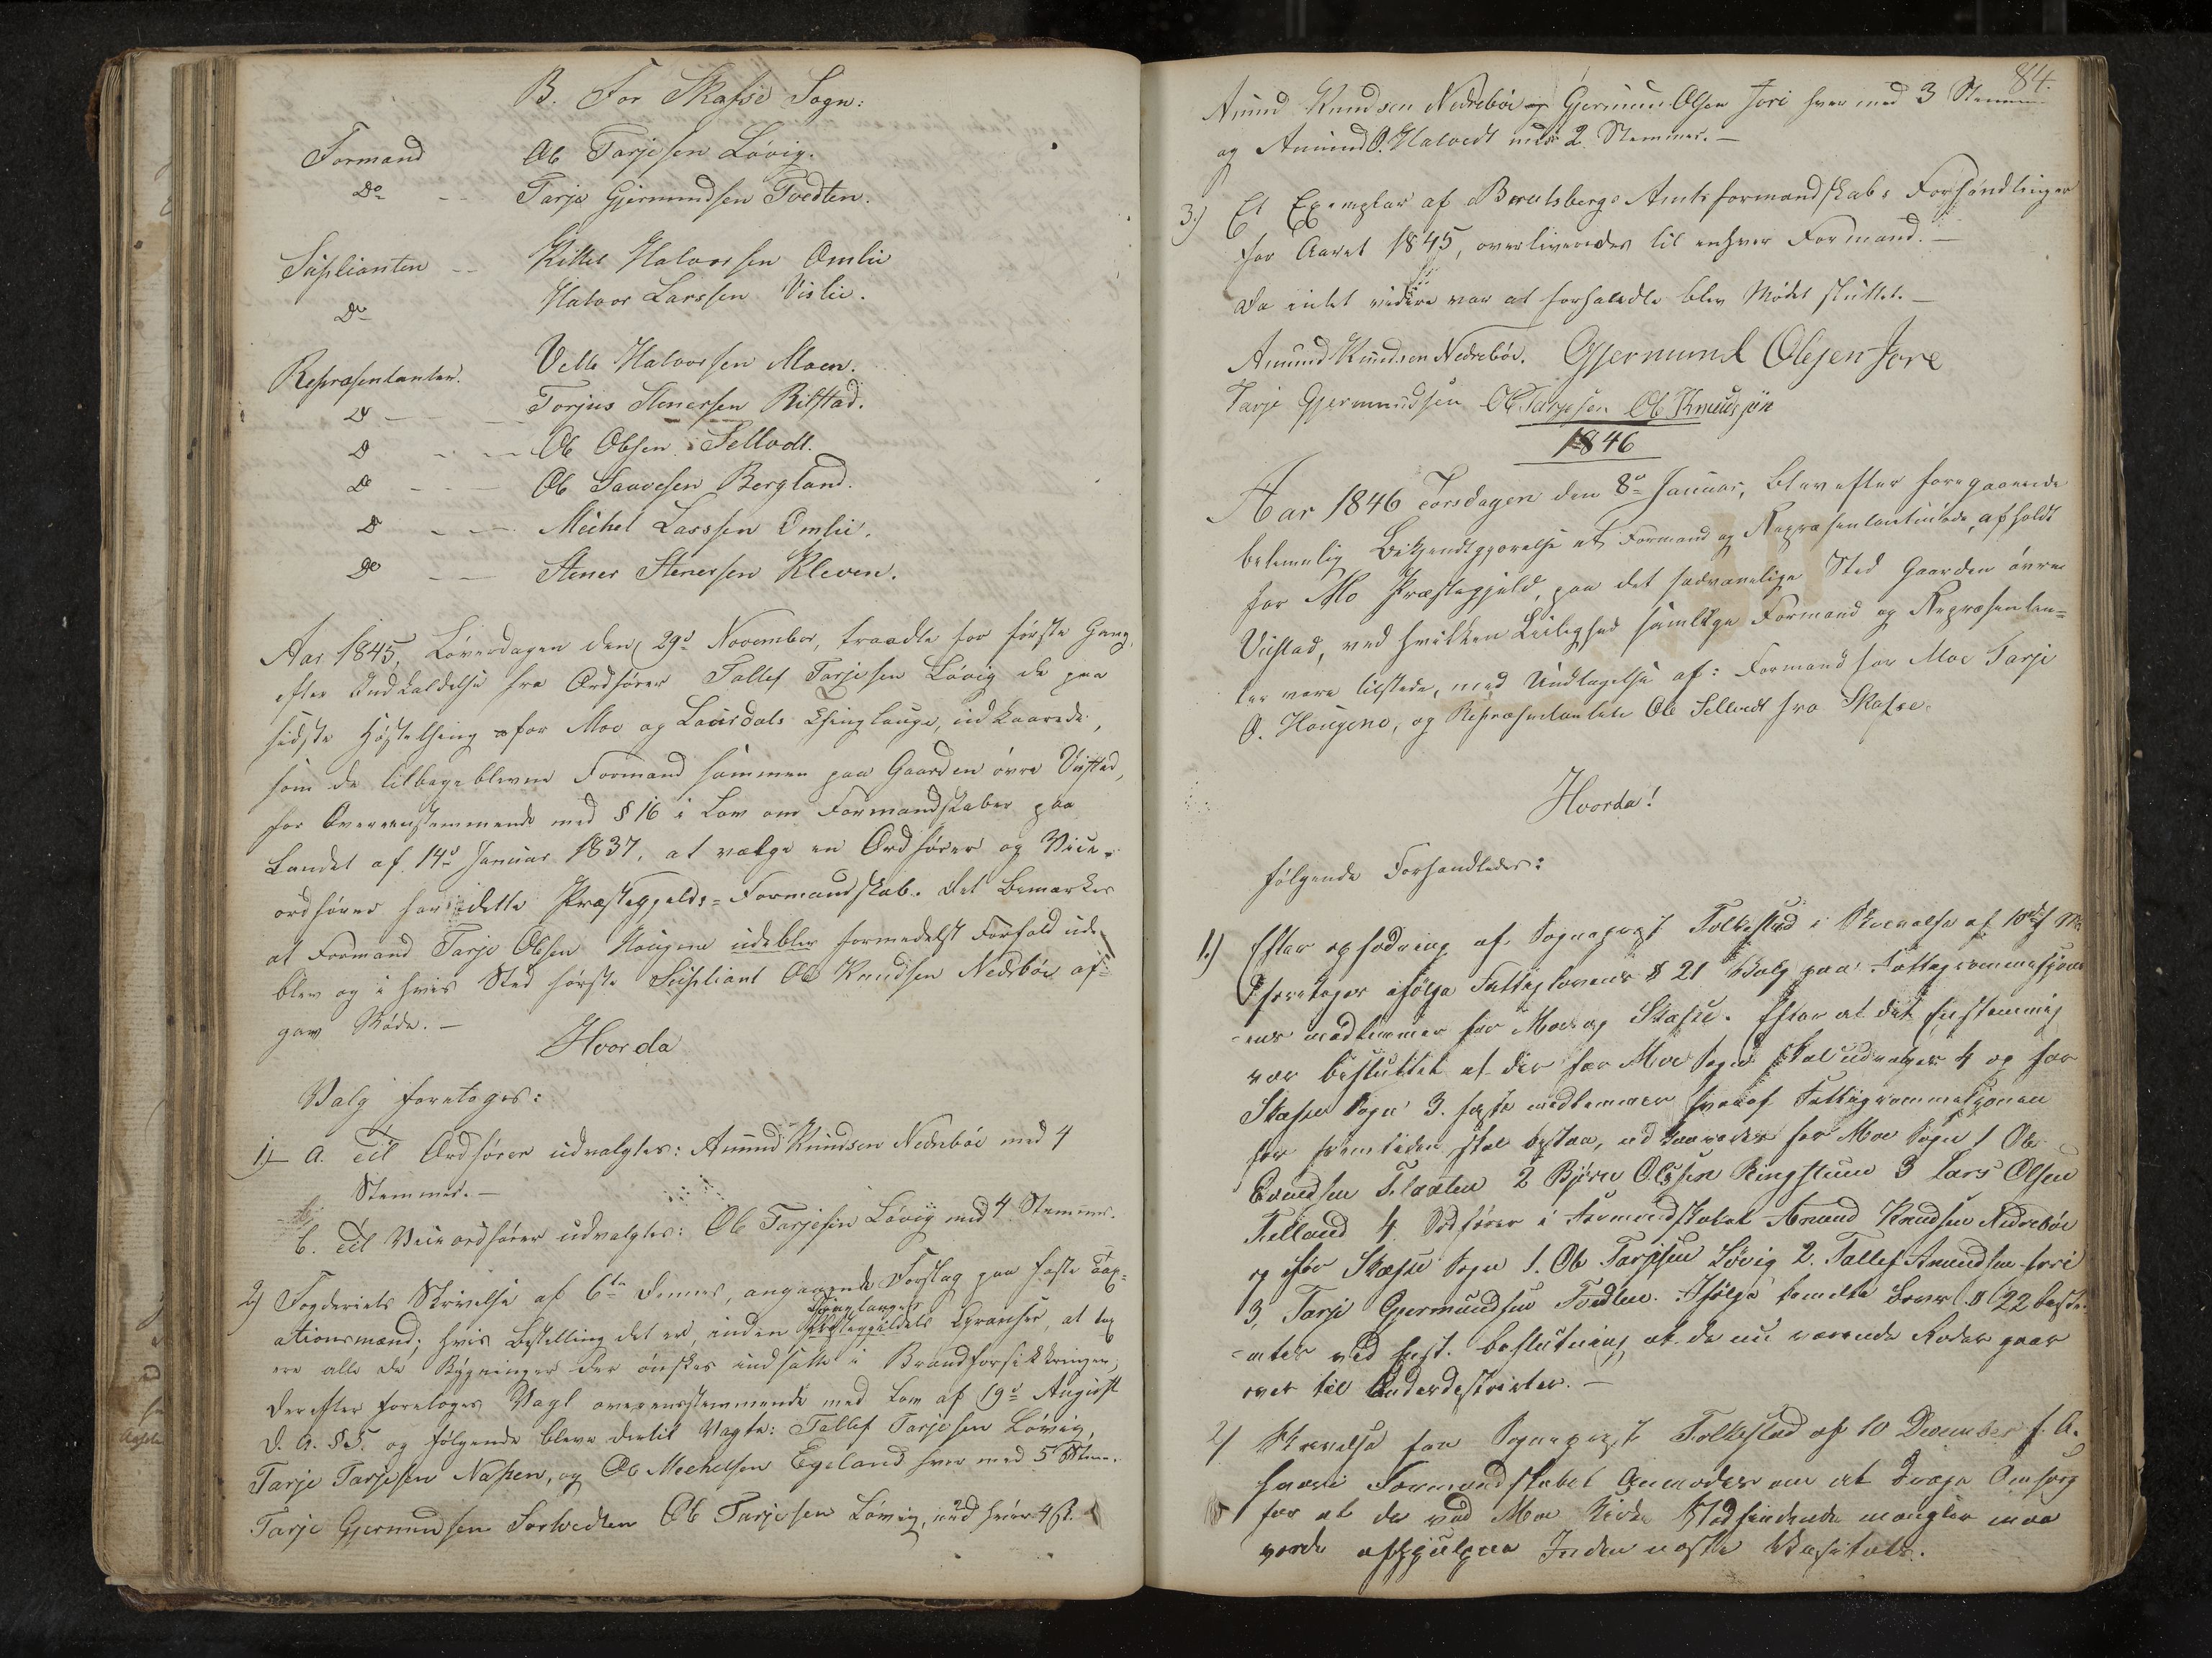 B. For Skafse Sogn:
Formand Ole Tarjesen Løvig.
Do -- Tarje Gjermundsen Tvedten.
Suplianten -- Kittel Halvorsen Omlie
Do Halvor Larssen Vislie.
Repræsentanter. Halvorsen Moen.
Do -- Torjus Stenersen Rilstad.
Do -- Ole Olsen Sellvedt.
Do -- Ole Saavesen Bergland.
Do -- Michel Larssen Omlie.
Do -- Stener Stenersen Kleven.
Aar 1845, Løverdagen den 29de November, traadte for første Gang,
efter Indkaldelse fra Ordfører Tallef Tarjesen Løvig de paa
sidste Høstething for Moe og Laurdals Thinglauge, udkaarede,
som de tilbageblevne Formænd sammen paa Gaarden øvre Vistad,
for Overeenstemmende med § 16 i Lov om Formandskaber paa
Landet af 14de Januar 1837, at vælge en Ordfører og Vice-
ordfører for dette Præstegjelds-Formandskab. Det bemærkes
at Formand Tarje Olsen Hougene udeblev formedelst Forfald ude-
blev og i hvis Sted første Supliant Ole Knudsen Nedrebøe af-
gav Møde. —
Hvorda
Valg foretoges:
1) a. Til Ordfører udvalgtes: Amund Knudsen Nedrebøe med 4
Stemmer. —
b. Til Viceordfører udvalgtes: Ole Tarjesen Løvig med 4 Stemmer.
2) Fogderiets Skrivelse af 6te dennes, angaaende Forslag paa faste Tax-
ationsmænd; hvis Bestilling det er, inden Thinglaugets Grændser, at tax
ere alle de Bygninger der ønskes indsatte i Brandforsikkringen,
derefter foretoges Valg overensstemmende med Lov af 19de August
d. A. § 5. og følgende bleve dertil valgte: Tallef Tarjesen Løvig,
Tarje Tarjesen Napen, og Ole Mechelsen Egeland hver med 5 Stem.
Tarje Gjermundsen Ole Tarjesen Løvig, med hver 4 St.
84.
Amund Knudsen Nedrebøe og Gjermund Olsen Jore hver med 3 Stemmer
og Amund O. Halvedt med 2 Stemmer. —
3.) Et Exemplar af Bratsbergs Amtsformandskabs Forhandlinger
for Aaret 1845, overleveredes til enhver Formand. —
Da intet videre var at forhandle blev Mødet sluttet. —
Amund Knudsen Nedrebøe. Gjermund Olesen Jore
Tarje Gjermundsen Ole Tarjesen Ole Knudsøn
1846
Aar 1846 Torsdagen den 8de Januar, blev efter foregaaende
belemelig Bekjendtgjørelse et Formand og Repræsentantmøde, afholdt
for Mo Præstegjeld, paa det sædvanelige Sted Gaarden øvre
Vistad, ved hvilken Leilighed samtlige Formænd og Repræsentan-
ter vare tilstede, med Undtagelse af: Formand for Moe Tarje
O. Hougene, og Repræsentanten Ole Sellvedt fra Skafse.
Hvorda!
følgende Forhandledes:
1.) Efter opfodring af Sognepræst Folkestad i Skrivelse af 10de f. M.
foretoges ifølge Fattiglovens § 21 Valg paa Fattigcommissjon-
ens medlemmer for Moe og Skafse. Efter at det Enstemmig
var besluttet at der for Moe Sogn skal udvælges 4 og for
Skafse Sogn 3. faste medlemmer hvoraf Fattigcommissjonen
for fremtiden skal bestaa, udkaaredes for Moe Sogn 1 Ole
Evendsen 2 Bjørn Olssen Ringsluun 3 Lars Olsen
Felland 4. Ordfører i Formandskabet Amund Knudsen Nedrebøe
og for Skafse Sogn 1. Ole Tarjesen Løvig 2. Tallef Amundsen Jore
3. Tarje Gjermundsen Tvedten. Ifølge samme Lovs § 22 beste-
mtes ved Enst. beslutning at de nu værende Roder gaar
over til Underdestrikter. —
2) Skrivelse fra Sognepræst Folkestad af 10 December f. A.
hvori Formandskabet Anmodes om at drage Omsorg
for at de ved Moe Kirke Stedfindende mangler maa
vorde afhjulpne Inden næste Visitats.